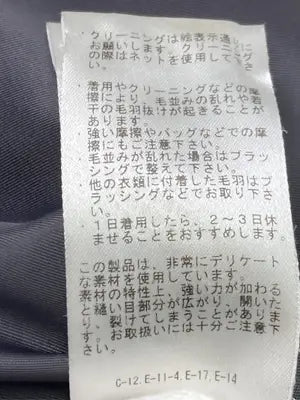 ・クリーニングは絵表示通り
お願いします。クリーニング
の際はネットを使用して下さ
い。
・着用やクリーニングなどの摩
擦により、毛並みの乱れや若
干の毛羽抜けが起きることが
あります。
・強い摩擦やバッグなどでの摩
擦にもご注意下さい。
・毛並みが乱れた場合はブラッ
シングで整えて下さい。
・他の衣類に付着した毛羽はブ
ラッシングなどでお取り下さ
い。
・1日着用したら、2〜3日休
ませることをおすすめします。
この製品は、非常にデリケート
な素材を使用しています。
素材の特性上、強い力が加わる
と縫い目部分が広がり、開いた
り、裂けてしまうことがありま
す。お取扱いには十分ご注意下
さい。
C-12.E-11-4.E-17.E-14